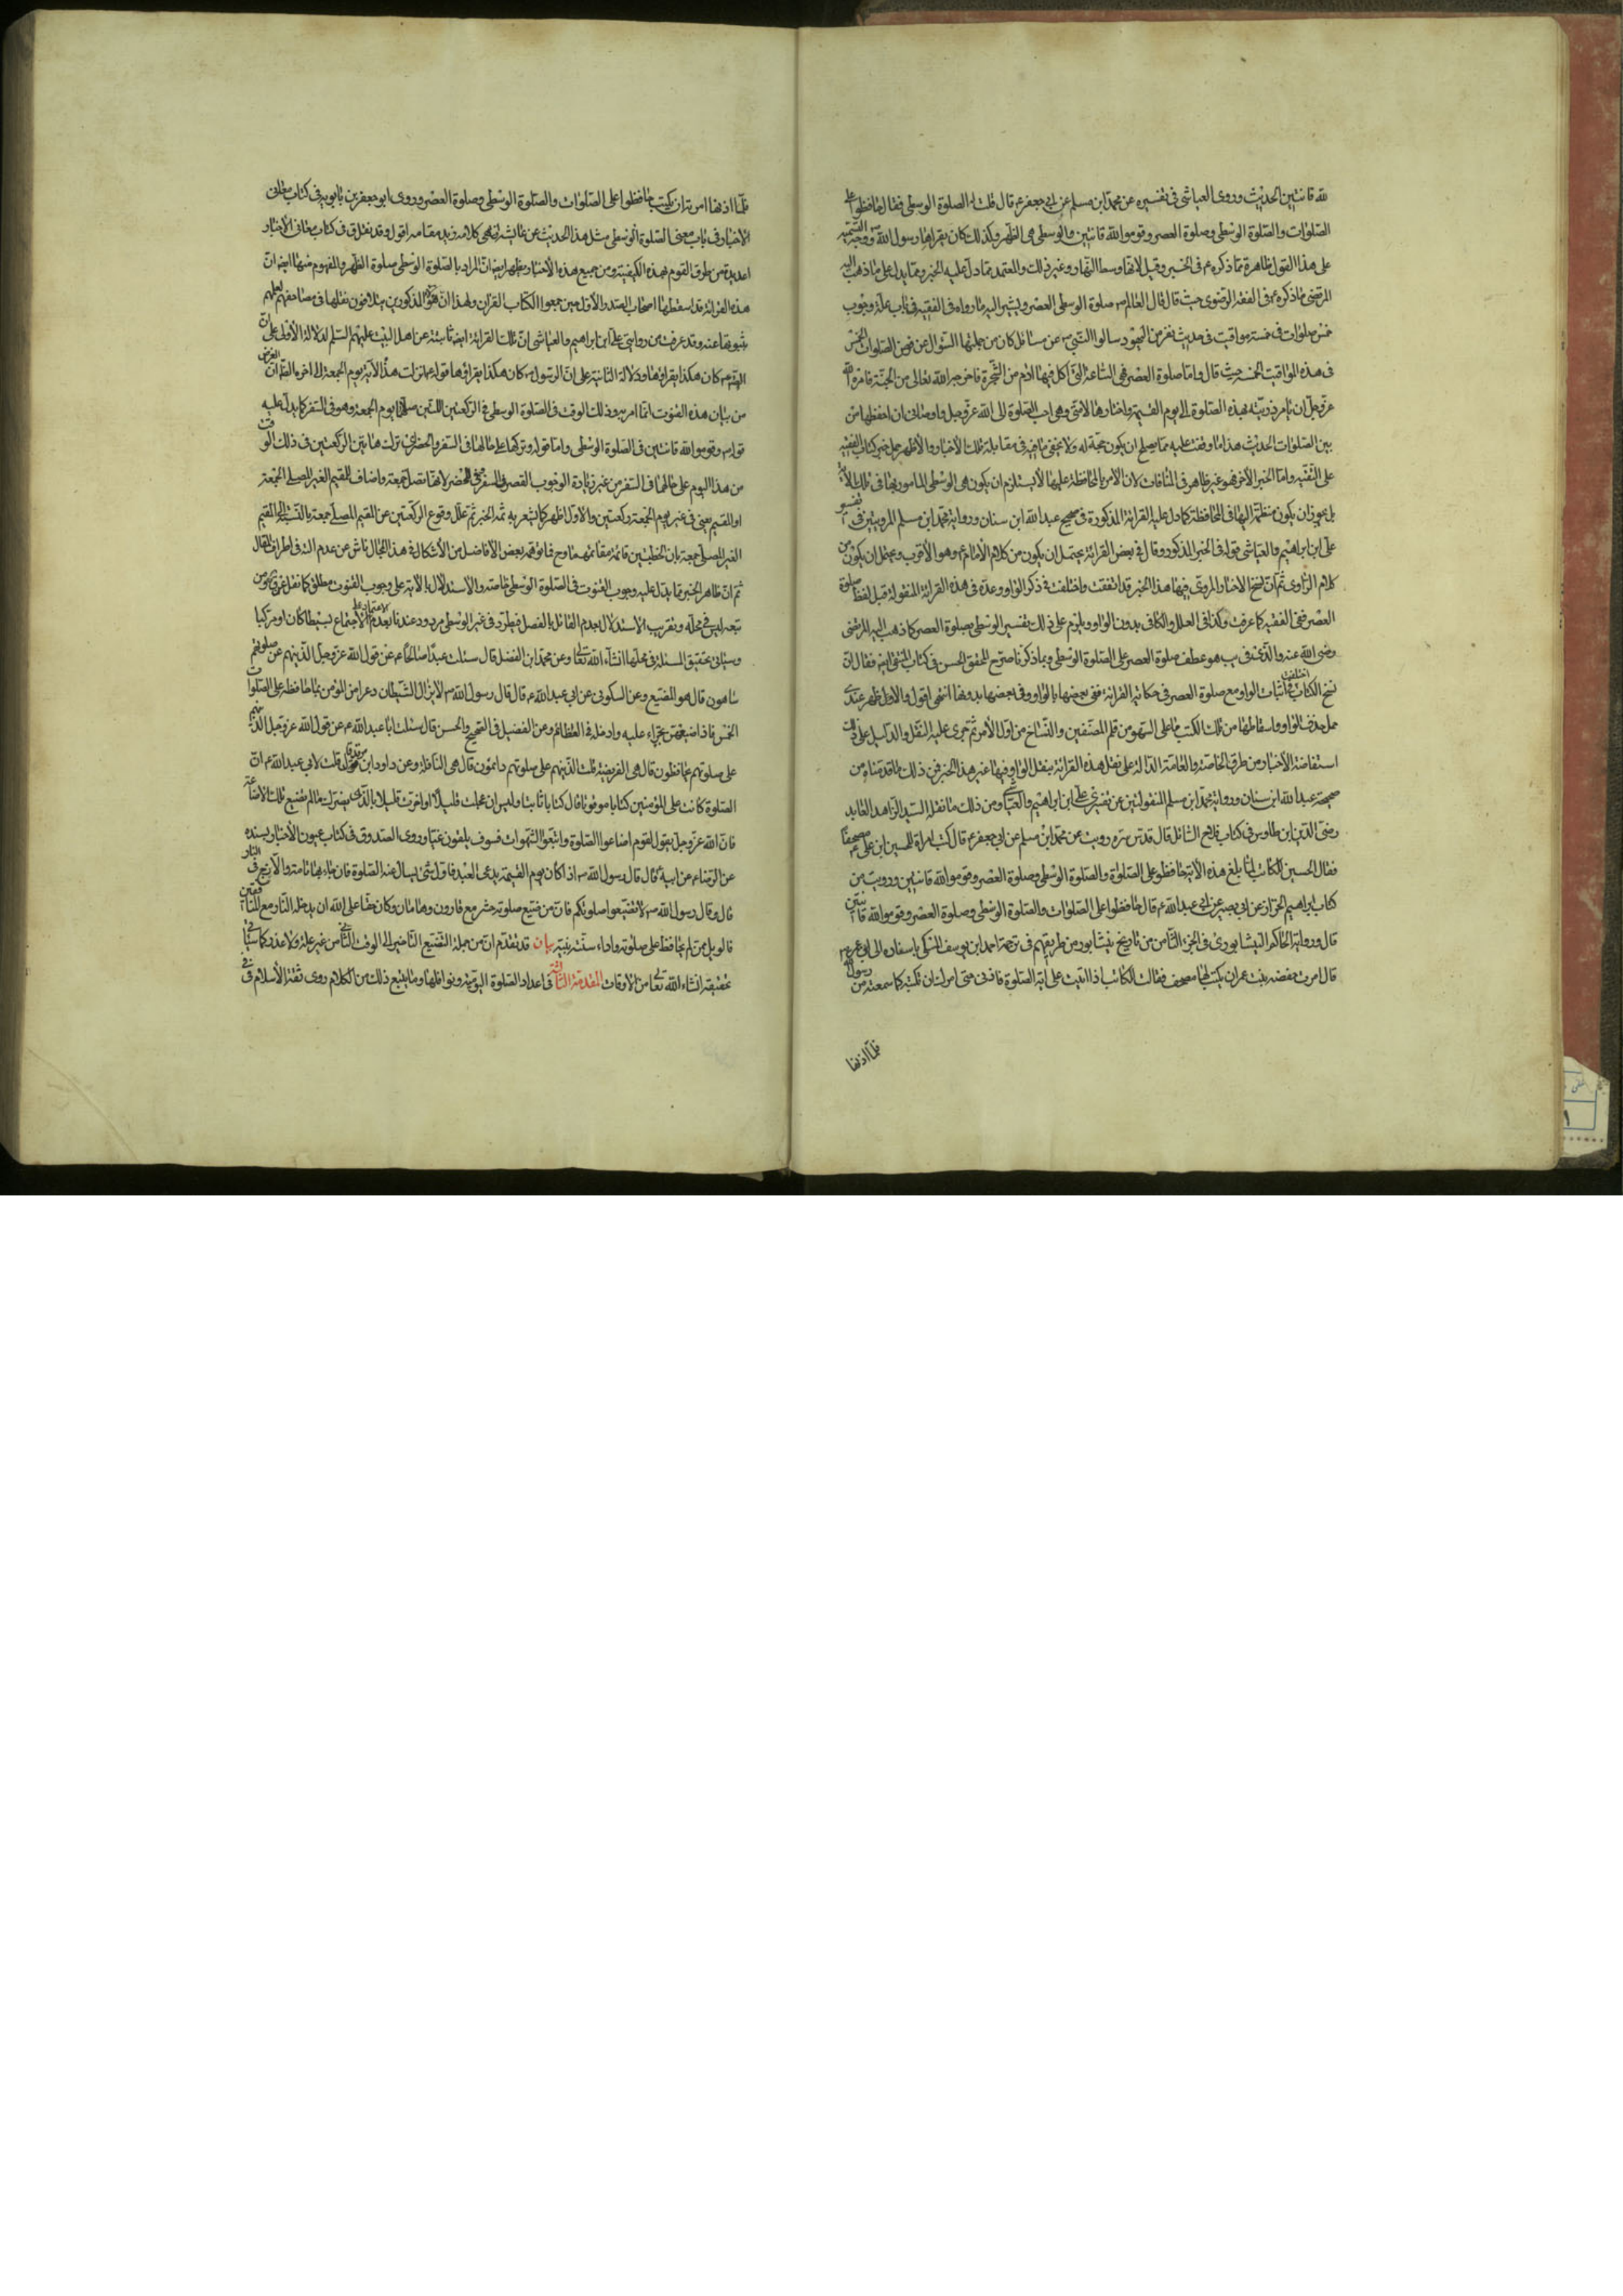 لله قانتين الحديث وروى العياشي في تفسيره عن محمد ابن مسلم عن ابي جعفر ع قال قلت له الصلوة الوسطى فقال حافظوا على
الصلوات والصلوة الوسطى وصلوة العصر وقوموا لله قانتين والوسطى هي الظهر وكذلك كان يقرأها رسول الله ص ووجه التسمية
على هذا القول ظاهرة مما ذكره ع في الخبر وقيل لانها وسط النهار وغير ذلك والمعتمد ما دل عليه الخبر ومما يدل على ما ذهب اليه
المرتضى ما ذكره ع في الفقه الرضوي حيث قال قال العالم ع صلوة الوسطى العصر ويشير اليه ما رواه في الفقيه في باب علة وجوب
خمس صلوات في خمسة مواقيت في حديث نفر من اليهود سالوا النبي ص عن مسائل كان من جملتها السؤال عن الصلوات الخمس
في هذه المواقيت الخمسة حيث قال واما صلوة العصر فهي الساعة التي اكل فيها ادم من الشجرة فاخرجه الله تعالى من الجنة فامره الله
عز وجل ان يامر ذريته بهذه الصلوة الى يوم القيمة واختارها لامتي وهي احب الصلوة الى الله عز وجل واوصاني ان احفظها من
بين الصلوات الحديث هذا ما وقفت عليه مما يصلح ان يكون حجة له ولا يخفى ما فيه في مقابلة تلك الاخبار والاظهر حمل خبر كتاب الفقيه
على التقية واما الخبر الاخر فهو غير ظاهر في المنافات لان الامر بالمحافظة عليها لا يستلزم ان يكون هي الوسطى المامور بها في تلك الاية
بل يجوز ان يكون منظمة اليها في المحافظة كما دل عليه القرائة المذكورة في صحيح عبد الله ابن سنان ورواية محمد ابن مسلم المرويتين في تفسير
علي ابن ابراهيم والعياشي قوله في الخبر المذكور وقال في بعض القرائة يحتمل ان يكون من كلام الامام ع وهو الاقرب ويحتمل ان يكون من
كلام الراوي ثم ان نسخ الاخبار المروي فيها هذا الخبر قد اتفقت واختلفت في ذكر الواو وعدمه في هذه القرائة المنقولة قبل لفظ صلوة
العصر ففي الفقيه كما عرفت وكذا في العلل والكافي بدون الواو ويلزم على ذلك تفسير الوسطى بصلوة العصر كما ذهب اليه المرتضى
رضي الله عنه والذي في يب هو عطف صلوة العصر على الصلوة الوسطى وبما ذكرنا صرح المحقق الحسن في كتاب المنتقى ايضا فقال ان
نسخ الكتاب اختلفت في اثبات الواو مع صلوة العصر في حكاية القرائة ففي بعضها بالواو وفي بعضها بدونها انتهى اقول والاول ظهر عندي
حمل حذف الواو واسقاطها من تلك الكتب على السهو من قلم المصنفين والنساخ من اول الامر ثم جرى عليه النقل والدليل على ذلك
استفاضة الاخبار من طرق الخاصة والعامة الدالة على نقل هذه القرائة بنقل الواو فيها غير هذا الخبر فمن ذلك ما قدمناه من
صحيحة عبد الله ابن سنان ورواية محمد ابن مسلم المنقولتين عن تفسيري علي ابن ابراهيم والعياشي ومن ذلك ما نقله السيد الزاهد العابد
رضي الدين ابن طاوس في كتاب فلاح السائل قال قدس سره رويت عن محمد ابن مسلم عن ابي جعفر ع قال كتب امراة الحسين ابن علي ع مصحفا
فقال الحسين للكاتب لما بلغ هذه الاية حافظوا على الصلوات والصلوة الوسطى وصلوة العصر وقوموا لله قانتين ورويت من
كتاب ابراهيم الخزاز عن ابي بصير عن ابي عبد الله ع قال حافظوا على الصلوات والصلوة الوسطى وصلوة العصر وقوموا لله قانتين
قال ورواية الحاكم النيشابوري في الجزء الثامن من تاريخ نيشابور من طريقهم في ترجمة احمد ابن يوسف السلمي باسناده الى ابن عمر
قال امرت حفصة بنت عمر ان يكتب لها مصحف فقالت للكاتب اذا اتيت على اية الصلوة فاذني حتى امرك ان تكتبه كما سمعته من رسول الله
فلما اذنها
فلما اذنها امرته ان يكتب حافظوا على الصلوات والصلوة الوسطى وصلوة العصر وروى ابو جعفر بن بابويه في كتاب معاني
الاخبار في باب معنى الصلوة الوسطى مثل هذا الحديث عن عائشة انتهى كلامه زيد مقامه اقول وقد نقل ق في كتاب معاني الاخبار
عديدة من طرق القوم بهذه الكيفية ومن جميع هذه الاخبار يظهر ايضا ان المراد بالصلوة الوسطى صلوة الظهر والمفهوم منها ايضا ان
هذه القرائة قد اسقطها اصحاب الصدر الاول حين جمعوا الكتاب القران ولهذا ان هؤلاء المذكورين يتلافون نقلها في مصاحفهم لعلمهم
بثبوتها عنه وقد عرفت من روايتي علي ابن ابراهيم والعياشي ان تلك القرائة ايضا ثابتة عن اهل البيت عليهم السلم لدلالة الاولى على ان
كان هكذا يقراؤها ودلالة الثانية على ان الرسول ص كان هكذا يقراؤها قوله ع نزلت هذه الاية يوم الجمعة الى اخره الظاهر ان الغرض
من بيان هذه القنوت انما امر به في ذلك الوقت في الصلوة الوسطى في الركعتين اللتين صلاهما يوم الجمعة وهو في السفر كما يدل عليه
قوله ع وقوموا لله قانتين في الصلوة الوسطى واما قوله وتركها على حالها في السفر والحضر اي ترك هاتين الركعتين في ذلك الوقت
من هذا اليوم على حالهما في السفر من غير زيادة لوجوب القصر في السفر وفي الحضر لانها تصلى جمعة واضاف للمقيم الغير المصلي الجمعة
او المقيم يعني في غير يوم الجمعة ركعتين والاول اظهر كما يشعر به تتمة الخبر ثم علل وقوع الركعتين عن المقيم المصلي جمعة بالنسبة الى المقيم
الغير المصلي جمعة بان الخطبتين قائمة مقامهما وح فما توهمه بعض الافاضل من الاشكال في هذا المجال ناش عن عدم التدبر في اطراف المقال
ثم ان ظاهر الخبر مما يدل عليه وجوب القنوت في الصلوة الوسطى خاصة والاستدلال بالاية على وجوب القنوت مطلق كما نقل عن ق ومن
تبعه ليس في محله وتقريب الاستدلال بعدم القائل بالفصل فيطرد في غير الوسطى مردود عندنا بعدم الاعتماد على الاجماع بسيطا كان او مركبا
وسياتي تحقيق المسئلة في محلها انشاء الله تعالى وعن محمد ابن الفضيل قال سئلت عبدا صالحا ع عن قول الله عز وجل الذينهم عن صلوتهم
ساهون قال هو التضييع وعن السكوني عن ابي عبد الله ع قال قال رسول الله ص لا يزال الشيطان ذعرا من المؤمن ما حافظ على الصلوات
الخمس فاذا ضيعهن تجرء عليه وادخله في العظائم وعن الفضيل في الصحيح والحسن قال سئلت ابا عبد الله ع عن قول الله عز وجل الذينهم
على صلوتهم يحافظون قال هي الفريضة قلت الذينهم على صلوتهم دائمون قال هي النافلة وعن داود ابن فرقد قال قلت لابي عبد الله ع ان
الصلوة كانت على المؤمنين كتابا موقوتا قال كتابا ثابتا وليس ان عجلت قليلا او اخرت قليلا بالذي يضرك ما لم تضيع تلك الاضاعة
فان الله عز وجل يقول لقوم اضاعوا الصلوة واتبعوا الشهوات فسوف يلقون غيا وروى الصدوق في كتاب عيون الاخبار بسنده
عن الرضا ع عن ابيه قال قال رسول الله ص اذا كان يوم القيمة يدعى العبد فاول شئ يسال عنه الصلوة فان جاء بها تامة والا زخ في النار
قال وقال رسول الله ص لا تضيعوا صلوتكم فان من ضيع صلوته حشر مع قارون وهامان وكان حقا على الله ان يدخله النار مع المنافقين
فالويل لمن لم يحافظ على صلوته واداء سنة نبيه بيان قد تقدم ان من جملة التضييع التاخير الى الوقت الثاني من غير علة ولا عذر كما سياتي
تحقيقه انشاء الله تعالى من الاوقات المقدمة الثانية في اعداد الصلوة اليومية ونوافلها وما يتبع ذلك من الكلام روى ثقة الاسلام في